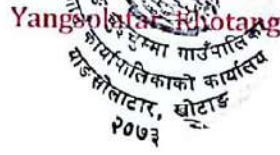 Yangsolatar, Khotang
गाउँपालिका
कार्यपालिकाको कार्यालय
याङसोलाटार, खोटाङ
२०७३